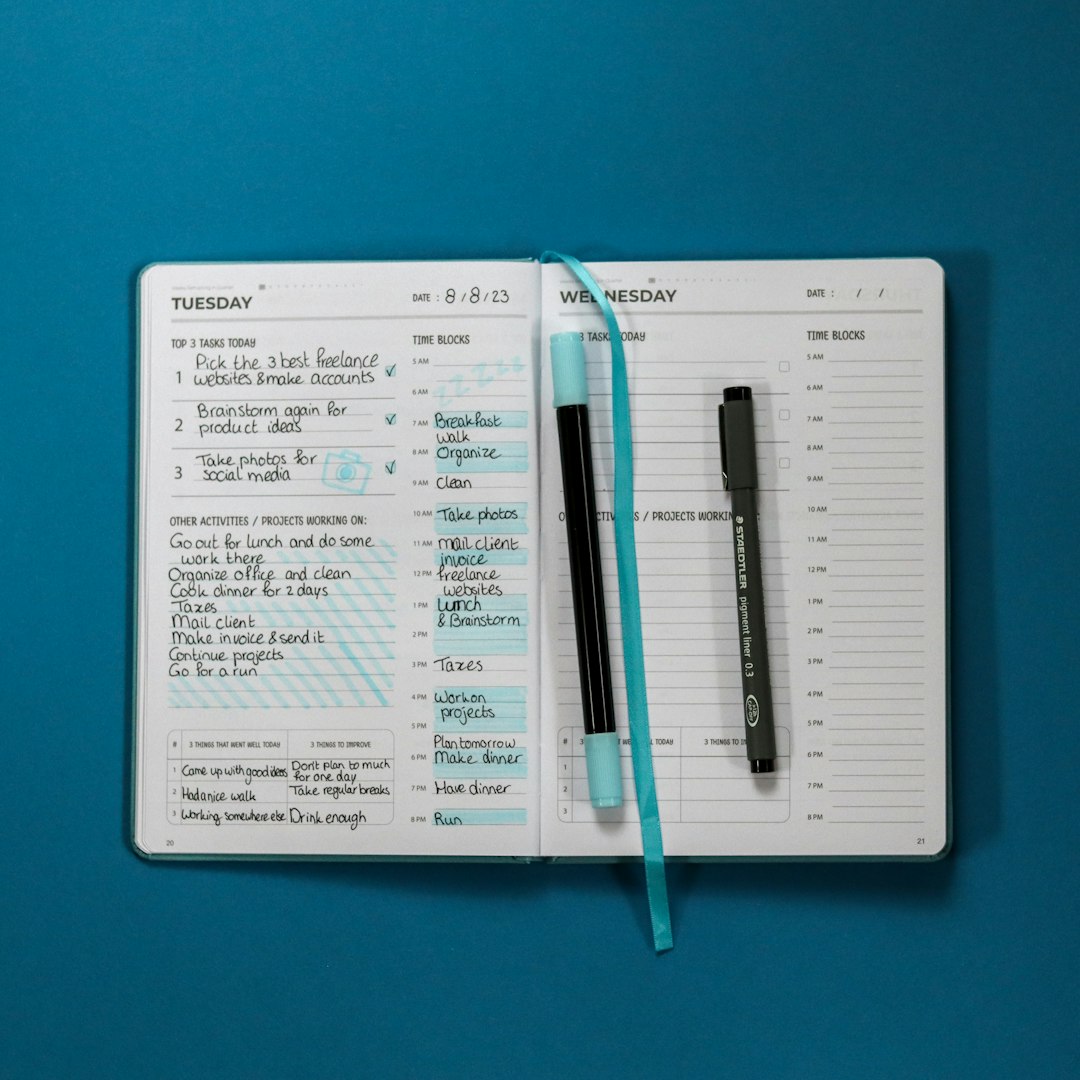 TUESDAY
DATE : 8/8/23
TOP 3 TASKS TODAY
1 Pick the 3 best freelance
websites & make accounts
2 Brainstorm again for
product ideas
3 Take photos for
social media
OTHER ACTIVITIES / PROJECTS WORKING ON:
Go out for lunch and do some
work there
Organize office and clean
Cook dinner for 2 days
Taxes
Mail client
Make invoice & send it
Continue projects
Go for a run
# 3 THINGS THAT WENT WELL TODAY 3 THINGS TO IMPROVE
1 Came up with good ideas Don't plan to much
for one day
2 Had a nice walk Take regular breaks
3 Working somewhere else Drink enough
20
TIME BLOCKS
5 AM
zzzzz
6 AM
7 AM Breakfast
walk
8 AM Organize
9 AM Clean
10 AM Take photos
11 AM mail client
invoice
12 PM freelance
websites
1 PM Lunch
& Brainstorm
2 PM
3 PM Taxes
4 PM Work on
projects
5 PM
Plan tomorrow
6 PM Make dinner
7 PM Have dinner
8 PM Run
WEDNESDAY
DATE : / /
3 TASKS TODAY
O CTIVITIES / PROJECTS WORKIN
# WELL TODAY 3 THINGS TO
1
2
3
TIME BLOCKS
5 AM
6 AM
7 AM
8 AM
9 AM
10 AM
11 AM
12 PM
1 PM
2 PM
3 PM
4 PM
5 PM
6 PM
7 PM
8 PM
21
STAEDTLER pigment liner 0.3